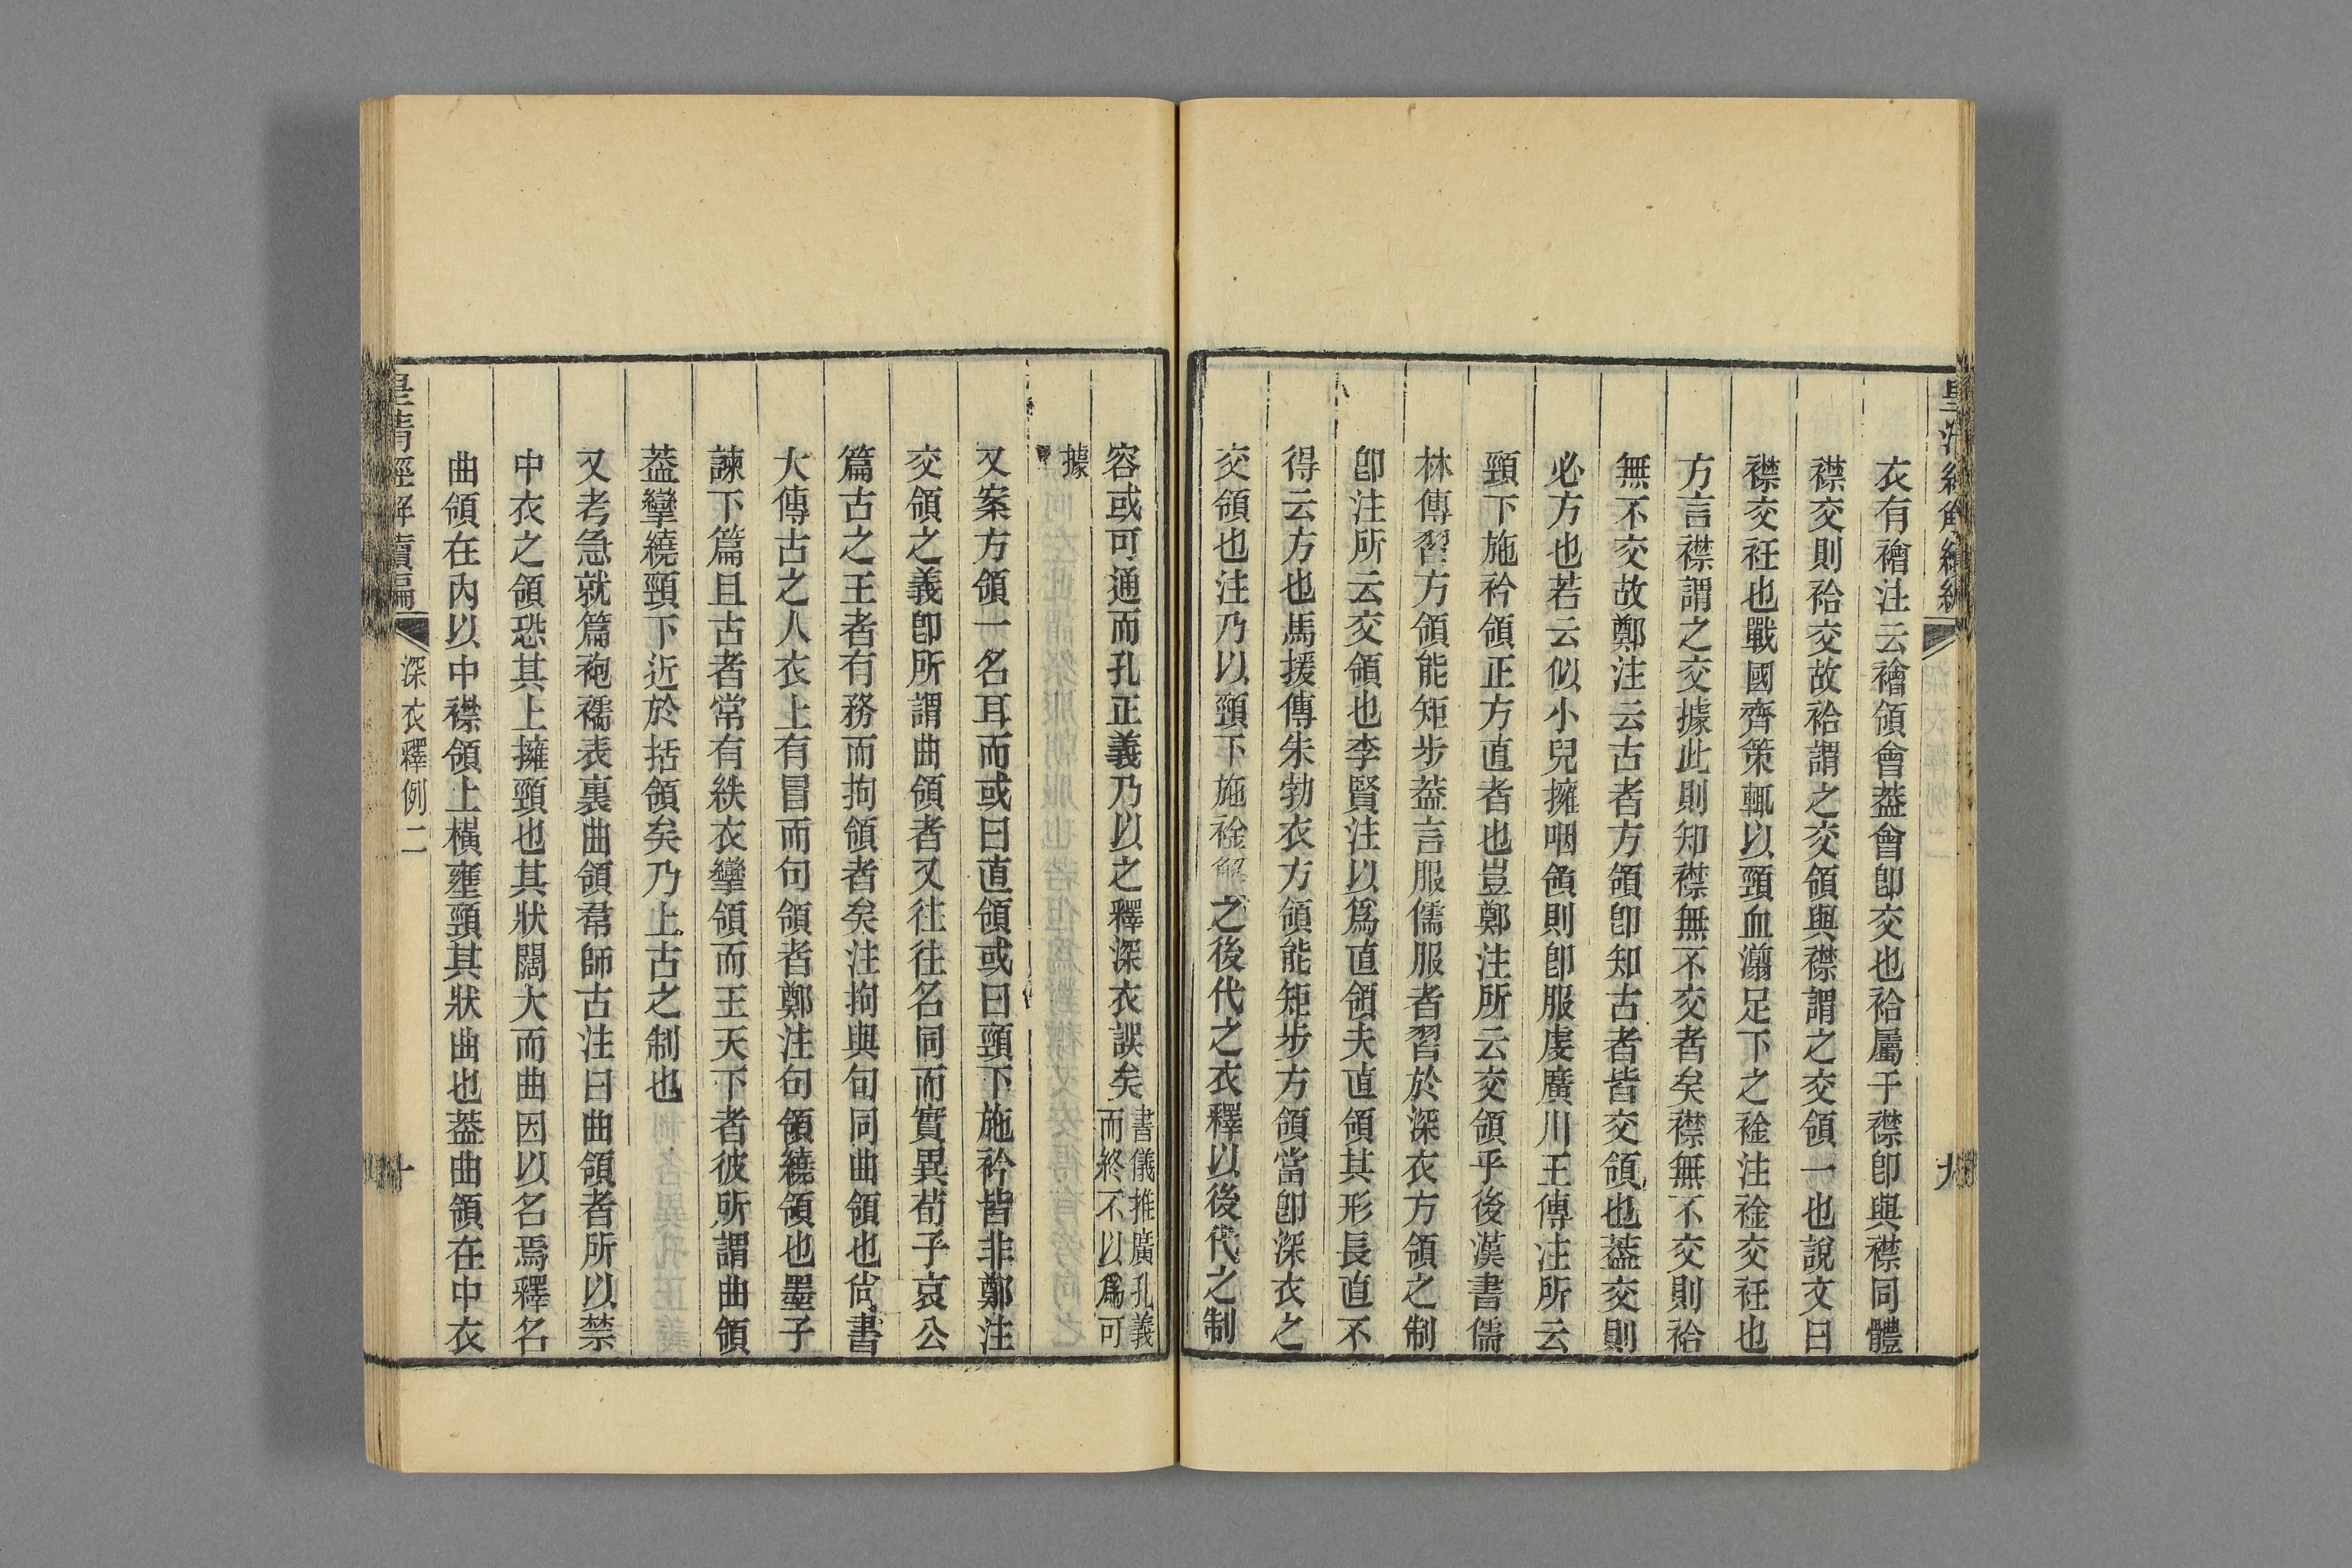 衣有襘注云襘領會葢會卽交也袷屬于襟卽與襟同體
襟交則袷交故袷謂之交領與襟謂之交領一也說文曰
襟交衽也戰國齊策輒以頸血濺足下之䘳注䘳交衽也
方言襟謂之交據此則知襟無不交者矣襟無不交則袷
無不交故鄭注云古者方領卽知古者皆交領也葢交則
必方也若云似小兒擁咽領則卽服虔廣川王傳注所云
頸下施衿領正方直者也豈鄭注所云交領乎後漢書儒
林傳習方領能矩步葢言服儒服者習於深衣方領之制
卽注所云交領也李賢注以爲直領夫直領其形長直不
得云方也馬援傳朱勃衣方領能矩步方領當卽深衣之
交領也注乃以頸下施䘳解之後代之衣釋以後代之制
九
容或可通而孔正義乃以之釋深衣誤矣書儀推廣孔義
而終不以爲可
據
又案方領一名耳而或曰直領或曰頸下施衿皆非鄭注
交領之義卽所謂曲領者又往往名同而實異荀子哀公
篇古之王者有務而拘領者矣注拘與句同曲領也尙書
大傳古之人衣上有冒而句領者鄭注句領繞領也墨子
諫下篇且古者常有紩衣攣領而王天下者彼所謂曲領
葢攣繞頸下近於括領矣乃上古之制也
又考急就篇袍襦表裏曲領帬師古注曰曲領者所以禁
中衣之領恐其上擁頸也其狀闊大而曲因以名焉釋名
曲領在內以中襟領上橫壅頸其狀曲也葢曲領在中衣
皇清經解續編
深衣釋例二
十